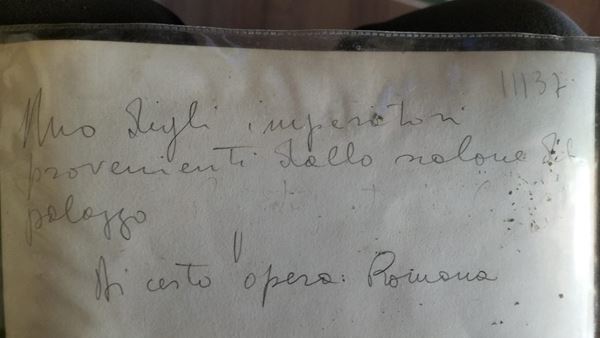 11137.
Uno degli imperatori
provenienti dallo salone del
palazzo
Di certo opera: Romana